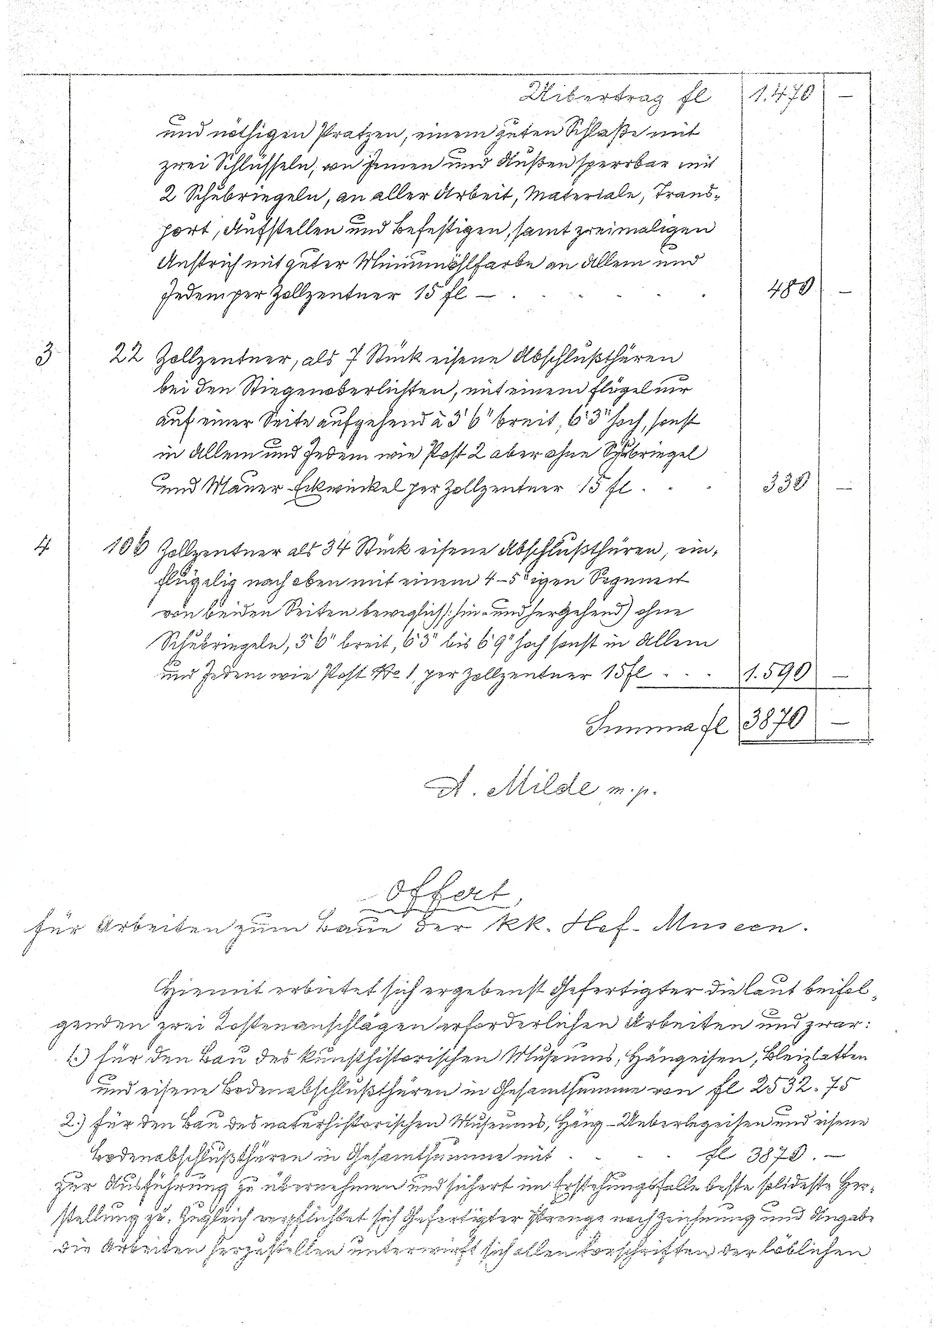 Uibertrag fl 1.470 —
und nöthigen Pratzen, einem guten Schloße mit
zwei Schlüsseln, von Jnnen und Außen sperrbar mit
2 Schubriegeln, an aller Arbeit, Materiale, Trans-
port, Aufstellen und Befestigen, samt zweimaligen
Anstrich mit guter Miniumöhlfarbe an Allem und
Jedem per Zollzentner 15 fl — . . . . . 480 —
3 22 Zollzentner, als 7 Stück eiserne Abschlußthüren
bei den Stiegenoberlichten, mit einem Flügel nur
auf einer Seite aufgehend à 3'6" breit, 6'3" hoch, sonst
in Allem und Jedem wie Post 2 aber ohne Schubriegel
und Mauer-Eckwinkel per Zollzentner 15 fl . . . 330 —
4 106 Zollzentner als 34 Stück eiserne Abschlußthüren, ein-
flügelig nach oben mit einem 4–5"igen Segment
von beiden Seiten beweglich (: hin- und hergehend) ohne
Schubriegeln, 3'6" breit, 6'3" bis 6'9" hoch sonst in Allem
und Jedem wie Post No 1, per Zollzentner 15 fl . . . 1.590 —
Summa fl 3870 —
A. Milde m. p.
Offert,
für Arbeiten zum Baue der kk. Hof-Museen.
Hiemit erbietet sich ergebenst Gefertigter die laut beifol-
genden zwei Kostenanschlägen erforderlichen Arbeiten und zwar:
1.) für den Bau des kunsthistorischen Museums, Hängeisen, Bleiplatten
und eiserne Bodenabschlußthüren in Gesammtsumme von fl 2532.75
2.) für den Bau des naturhistorischen Museums, Häng-Ueberlegeisen und eiserne
Bodenabschlußthüren in Gesammtsumme mit . . . . . fl 3870. —
zur Ausführung zu übernehmen und sichert im Erstehungsfalle beste solideste Her-
stellung zu. Zugleich verpflichtet sich Gefertigter strenge nach Zeichnung und Angabe
die Arbeiten herzustellen unterwirft sich allen Vorschriften der löblichen